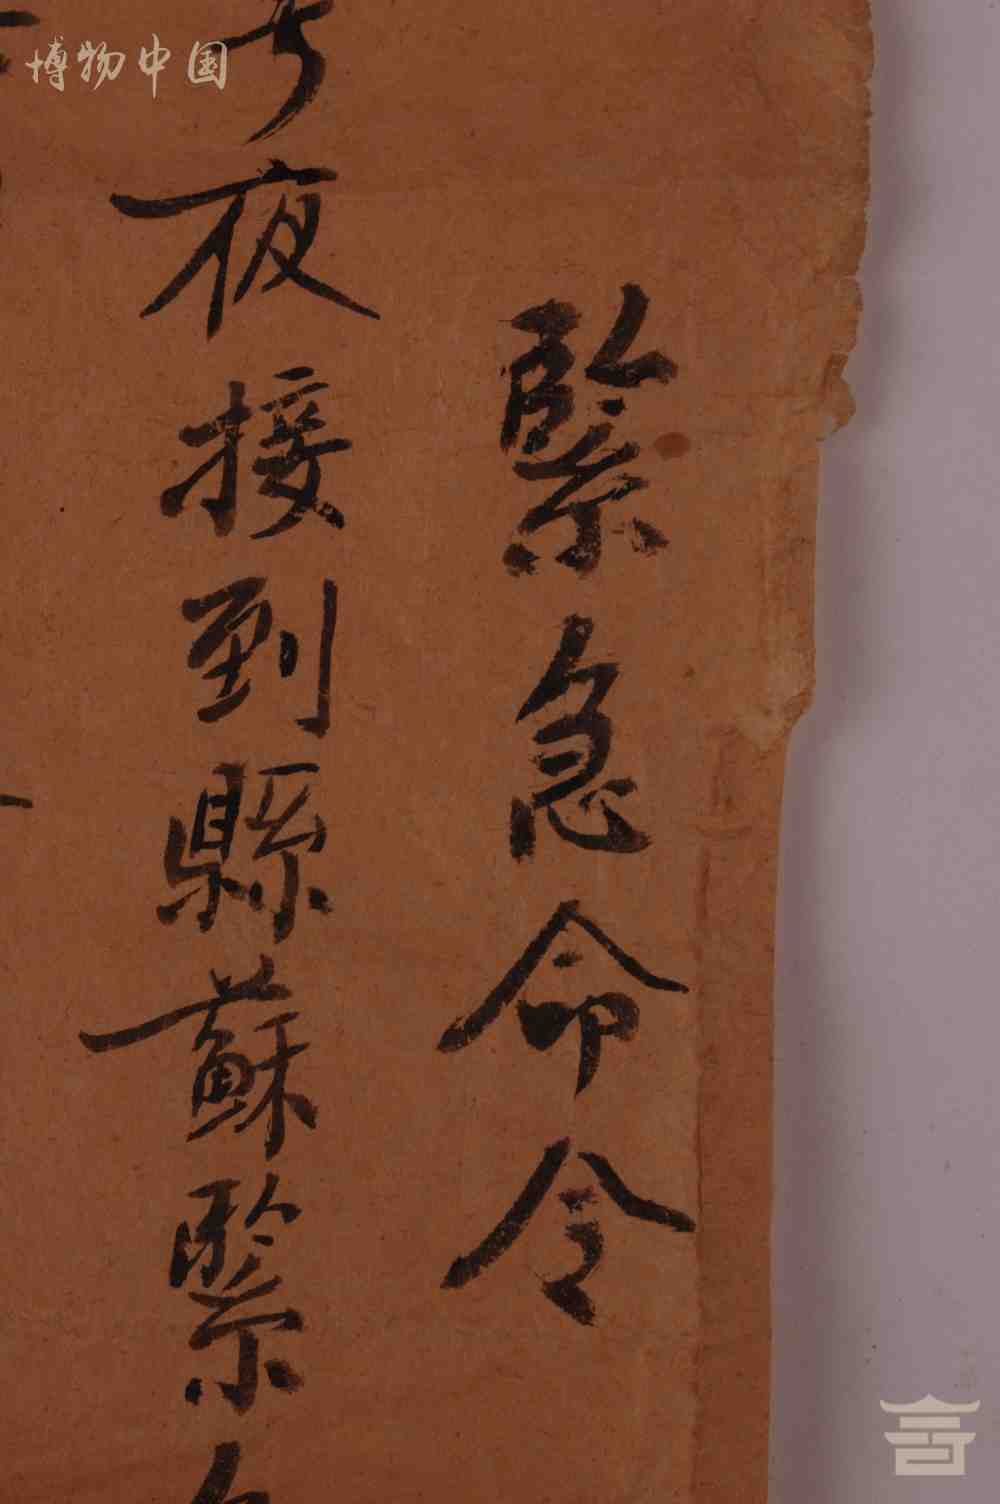 緊急命令
夜接到縣蘇緊
博物中国